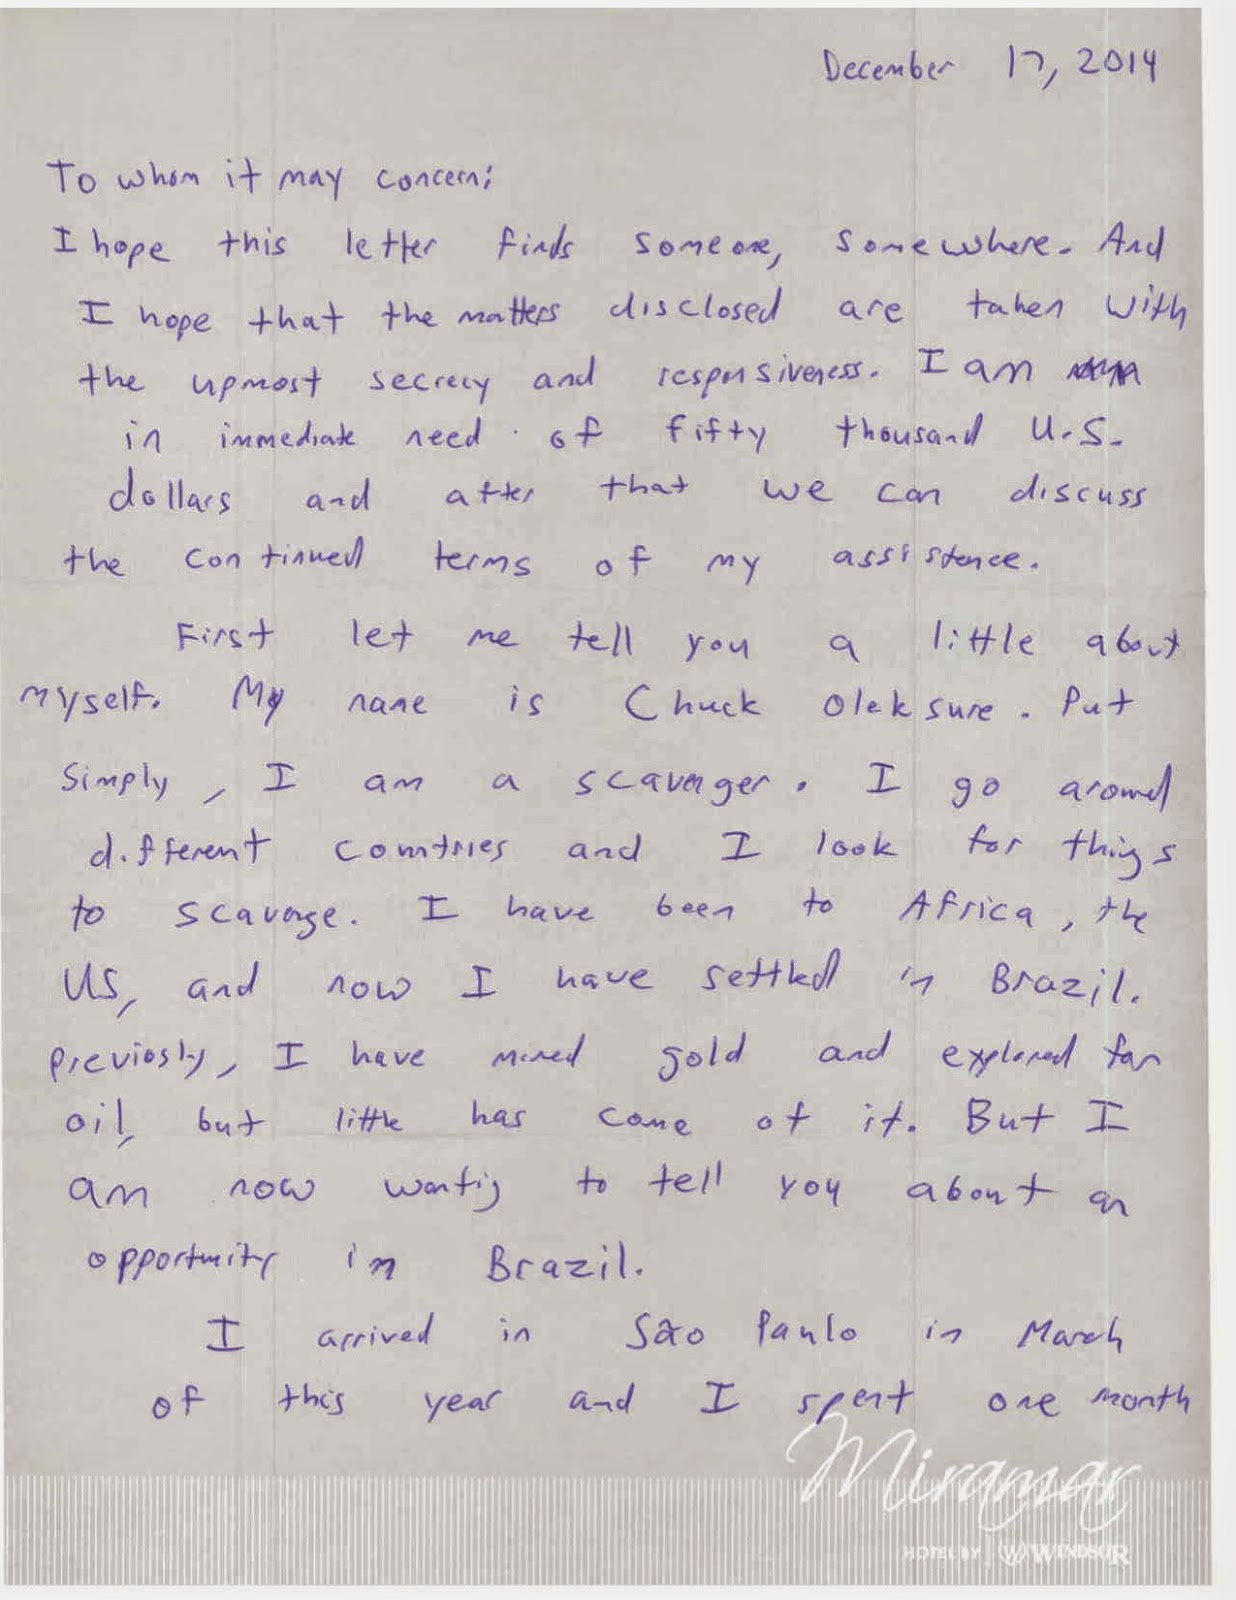 December 17, 2014
To whom it may concern;
I hope this letter finds someone, somewhere. And
I hope that the matters disclosed are taken with
the upmost secrecy and responsiveness. I am
in immediate need of fifty thousand U.S.
dollars and after that we can discuss
the continued terms of my assistence.
First let me tell you a little about
myself. My name is Chuck Oleksure. Put
simply, I am a scavenger. I go around
different countries and I look for things
to scavenge. I have been to Africa, the
US, and now I have settled in Brazil.
Previosly, I have mined gold and explored for
oil, but little has come of it. But I
am now wanting to tell you about an
opportunity in Brazil.
I arrived in São Paulo in March
of this year and I spent one month
Miramar
HOTEL BY WINDSOR